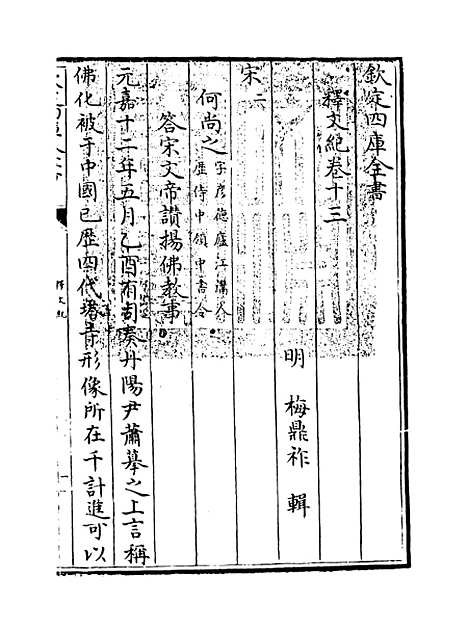 欽定四庫全書
釋文紀卷十三
明 梅鼎祚 輯
宋二
何尚之字彦德廬江灊人
歴侍中領中書令
答宋文帝讃揚佛教事
元嘉十二年五月乙酉有司奏丹陽尹蕭摹之上言稱
佛化被于中國已歴四代塔寺形像所在千計進可以
釋文紀